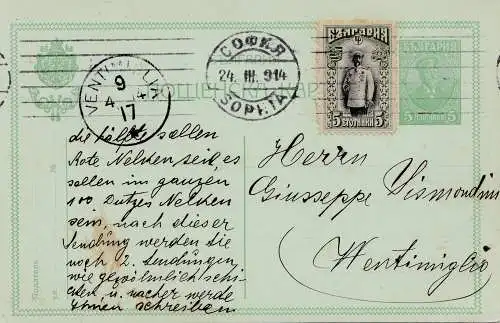 СОФИЯ
24. III. 914
SOPHIA
VENTIMIGLIA
9
4 4
17
БЪЛГАРИЯ
5 5
СТОТИНКИ
БЪЛГАРИЯ
5 5
СТОТИНКИ
ПОЩЕНСКА КАРТА
die hälfte sollen
Rote Nelken seid, es
sollen im ganzen
100 Dutzes Nelken
sein, nach dieser
Sendung werden Sie
noch 2. Sendungen,
wie gewöhnlich schi-
cken, u. nacher werde
Ihnen schreiben
Herrn
Giuseppe Vismondini
Wentimiglio